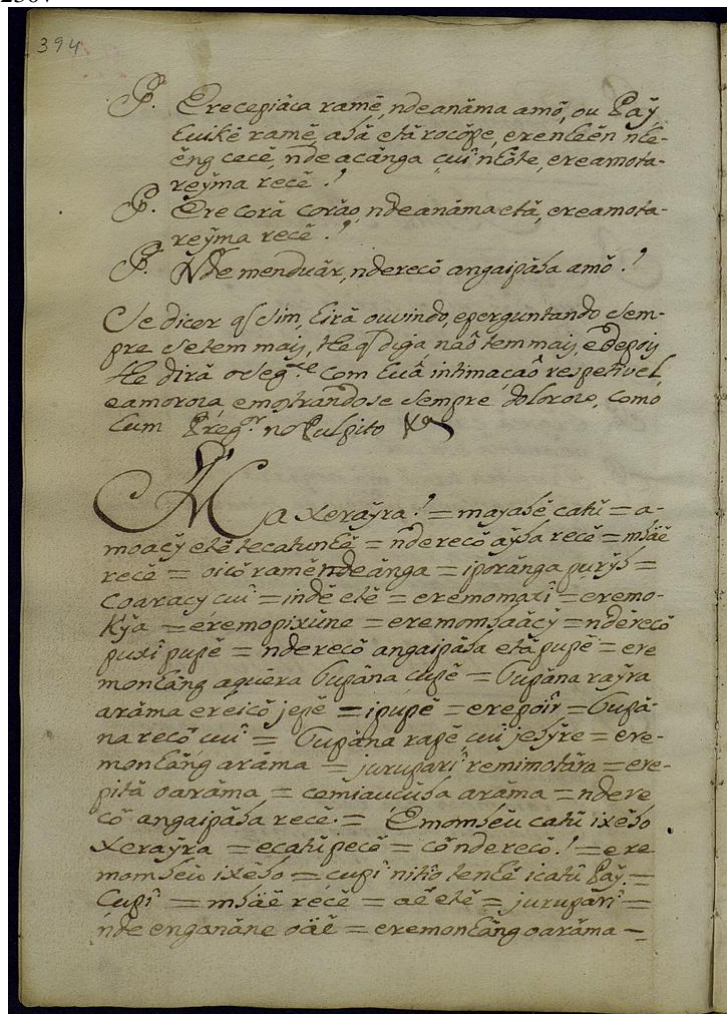 394
P. Erecepiáca ramẽ, ndeanáma amõ, ou Paỹ
tuikê ramẽ, abá etá rocôpe, erenheẽn nhe-
ẽng cecê, nde acánga cuî nhôte, ereamota-
reỹma recê.?
P. Ere corá corão, ndeanáma etá, ereamota-
reỹma recê.?
P. Nde menduár, nderecô angaipába amõ.?
Se dicer q̃ sim, hirá ouvindo, eperguntando sem-
pre se tem mais, the q̃ diga naõ tem mais, e depois
lhe dirá o seg.te com huã intimaçaõ respetivel,
eamoroza, emostrandose sempre doloroso, como
hum Preg.or no Pulpito
Ma xeraỹra! = mayabê catũ = a-
moacỹ etê tecatunhẽ = nderecô aỹba recê = mbäê
recê = oicô ramẽ ndeánga = iporánga purỹb =
coaracy cuî = indê etê = eremomaxî = eremo-
kỹa = eremopixúne = eremombaäcỹ = nderecô
puxî pupê = nderecô angaipába etá pupê = ere
monháng aguéra Tupána cupê = Tupána raỹra
aráma ereicô jepê = ipupê = erepoîr = Tupá-
na recô cuî = Tupána rapê cuî jebỹre = ere-
monháng aráma = juruparî remimotára = ere-
pitá oaráma = cemiaucúba aráma = ndere
cô angaipába recê = Emombeú catũ ixébo
xeraỹra = ecatũ pecô = cô nderecô! = ere
mombeú ixébo = cupî nitîo tenhẽ icatũ Paỹ. =
Cupî = mbäê recê = aê etê = juruparî =
nde enganáne oäê = eremonháng oaráma =